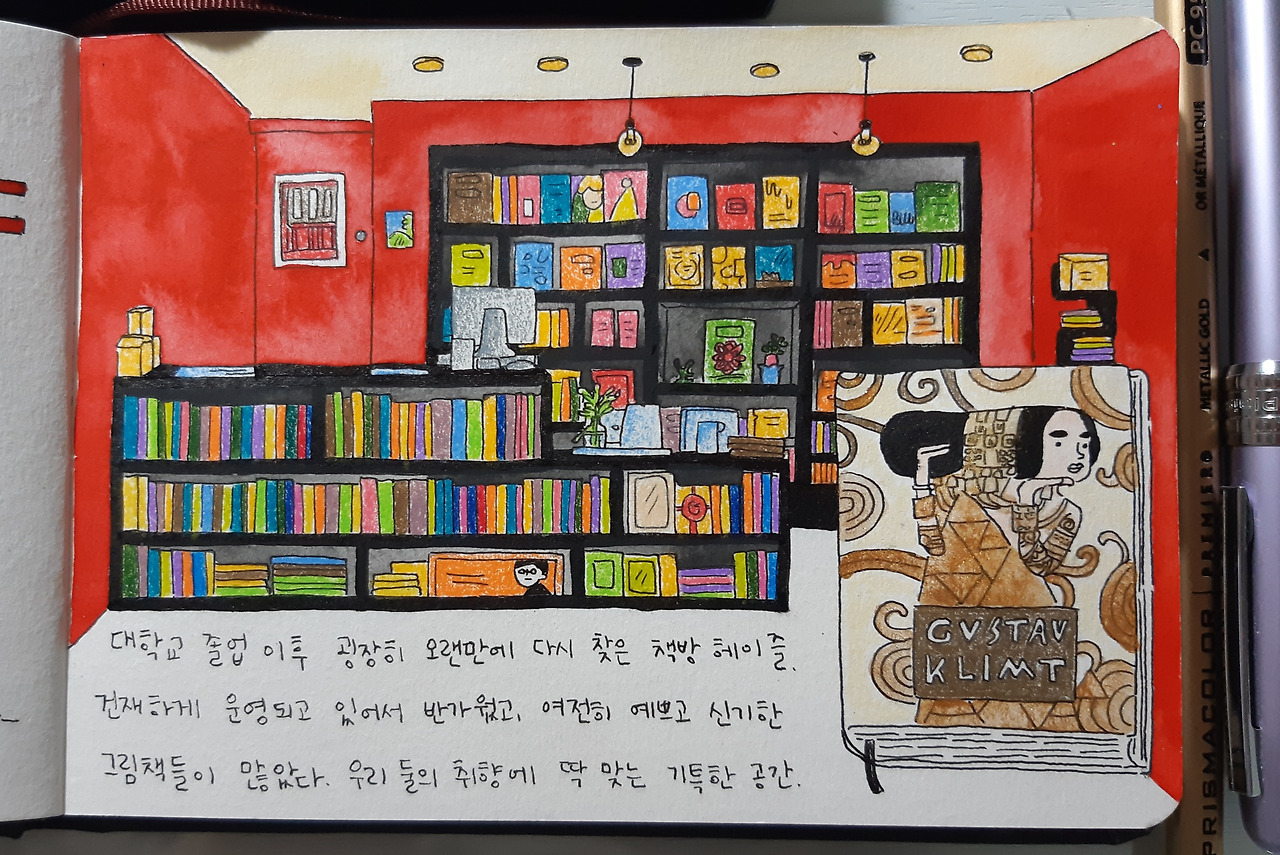 대학교 졸업 이후 굉장히 오랜만에 다시 찾은 책방 헤이즐.
건재하게 운영되고 있어서 반가웠고, 여전히 예쁘고 신기한
그림책들이 많았다. 우리 둘의 취향에 딱 맞는 기특한 공간.
GUSTAV
KLIMT
PRISMACOLOR | PREMIER METALLIC GOLD ▲ OR MÉTALLIQUE PC 95